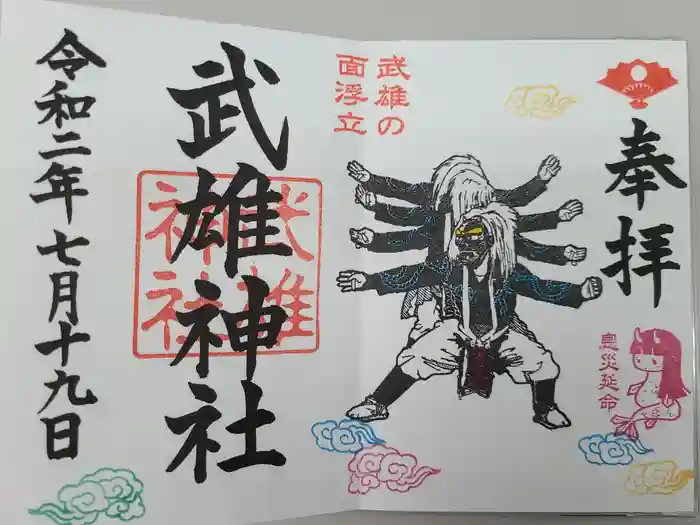 奉拝
息災延命
武雄の
面浮立
武雄神社
武雄
神社
令和二年七月十九日